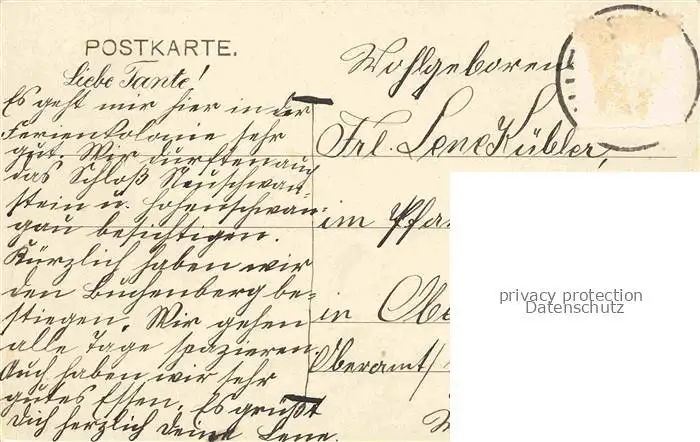 POSTKARTE.
Liebe Tante!
Es geht mir hier in der
Ferienkolonie sehr
gut. Wir durften auch
das Schloß Neuschwan-
stein u. Hohenschwan-
gau besichtigen.
Kürzlich haben wir
den Buchenberg be-
stiegen. Wir gehen
alle Tage spazieren.
Auch haben wir sehr
gutes Essen. Es grüßt
Dich herzlich deine Lene.
Wohlgeboren
Frl. Lene Kübler,
im Pfar
in Obe
Oberamt/
privacy protection
Datenschutz